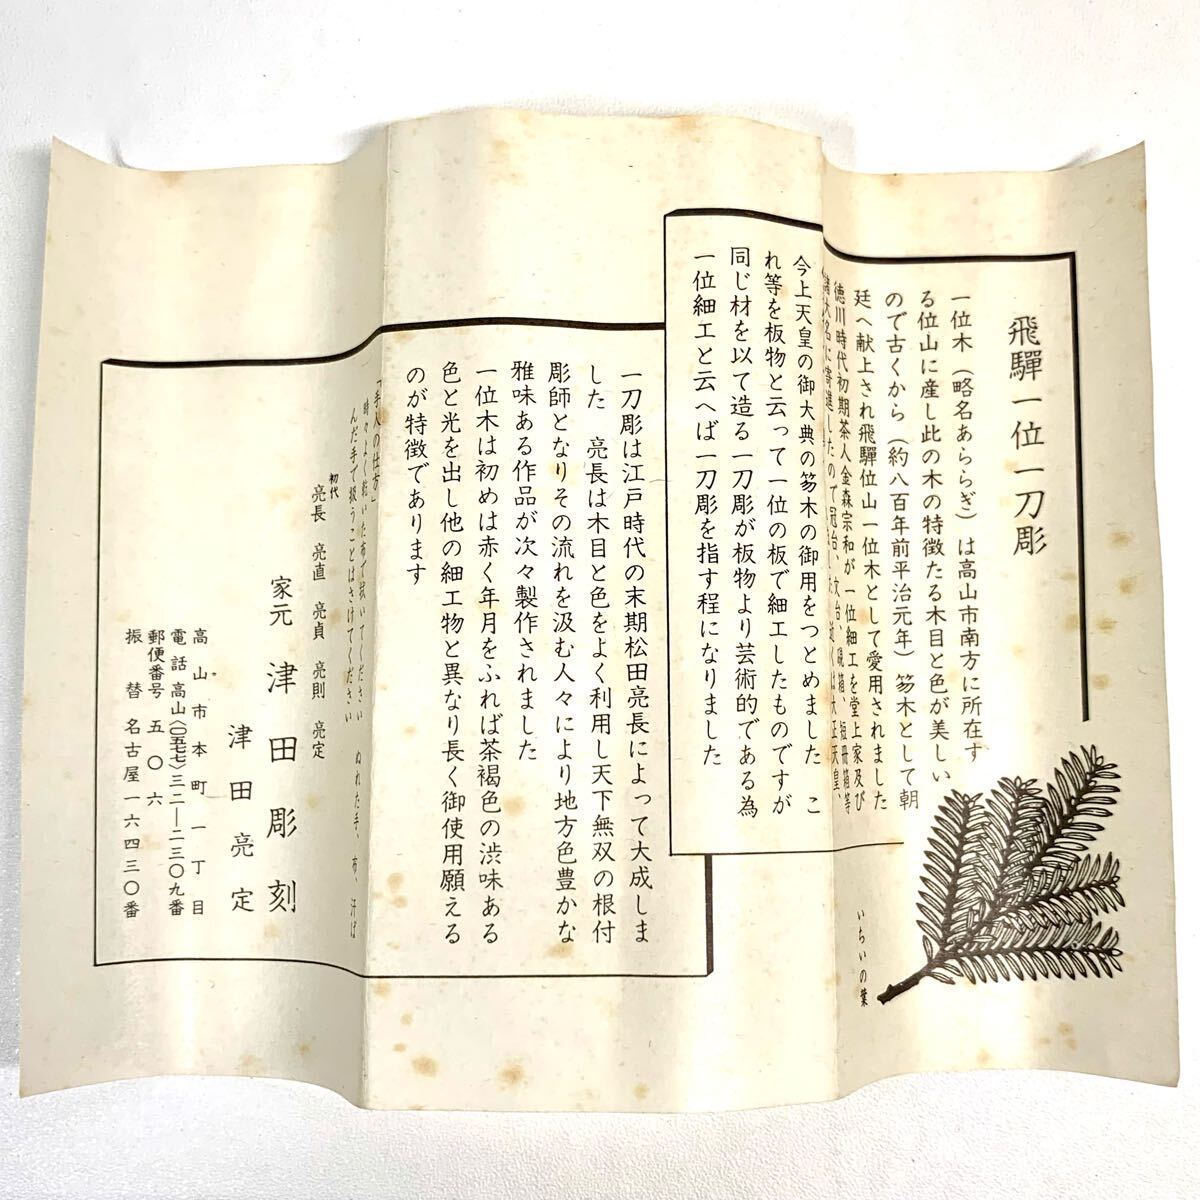 飛驒一位一刀彫
一位木（略名あららぎ）は高山市南方に所在す
る位山に産し此の木の特徴たる木目と色が美しい
ので古くから（約八百年前平治元年）笏木として朝
廷へ献上され飛驒位山一位木として愛用されました
徳川時代初期茶人金森宗和が一位細工を堂上家及び
諸大名に寄進したので冠台、文台、硯箱、短冊箱等
は大正天皇、
今上天皇の御大典の笏木の御用をつとめました　こ
れ等を板物と云って一位の板で細工したものですが
同じ材を以て造る一刀彫が板物より芸術的である為
一位細工と云へば一刀彫を指す程になりました
いちいの葉
一刀彫は江戸時代の末期松田亮長によって大成しま
した　亮長は木目と色をよく利用し天下無双の根付
彫師となりその流れを汲む人々により地方色豊かな
雅味ある作品が次々製作されました
一位木は初めは赤く年月をふれば茶褐色の渋味ある
色と光を出し他の細工物と異なり長く御使用願える
のが特徴であります
「手入の仕方」
時々よく乾いた布で拭いてください　ぬれた手、布、汗ば
んだ手で扱うことはさけてください
初代
亮長　亮直　亮貞　亮則　亮定
家元　津田彫刻
津田亮定
高山市本町一丁目
電話高山(〇五七七)三二―二三〇九番
郵便番号　五〇六
振替　名古屋一六四三〇番